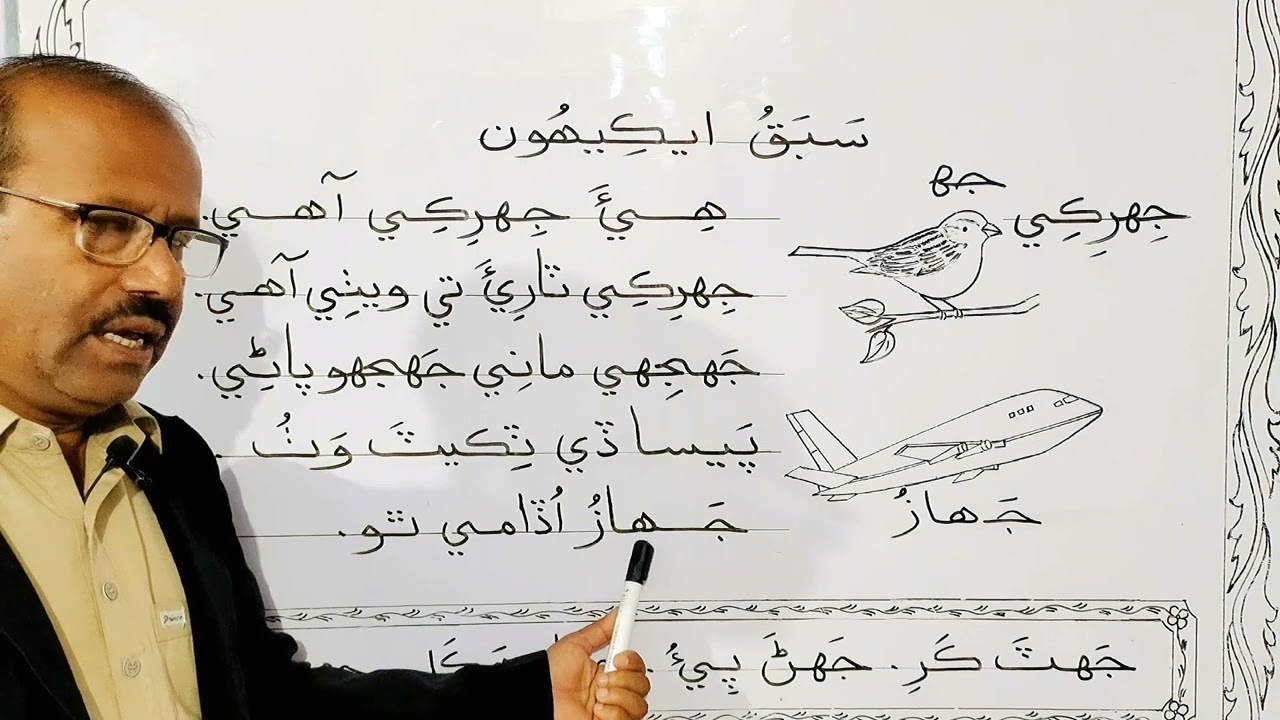 سَبَقُ ايڪِيھُون
جھ
جِھرِڪِي
ھِيءَ جِھرِڪِي آھي.
جِھرِڪِي ٽارِيءَ تي ويٺِي آھي.
جَھجِھي مانِي جَھجھو پاڻِي.
پَيسا ڏي ٽِڪيٽَ وَٺُ.
جَھازُ اُڏامي ٿو.
جَھازُ
جَھٽَ ڪَرِ. جَھڻَ پِيءُ.